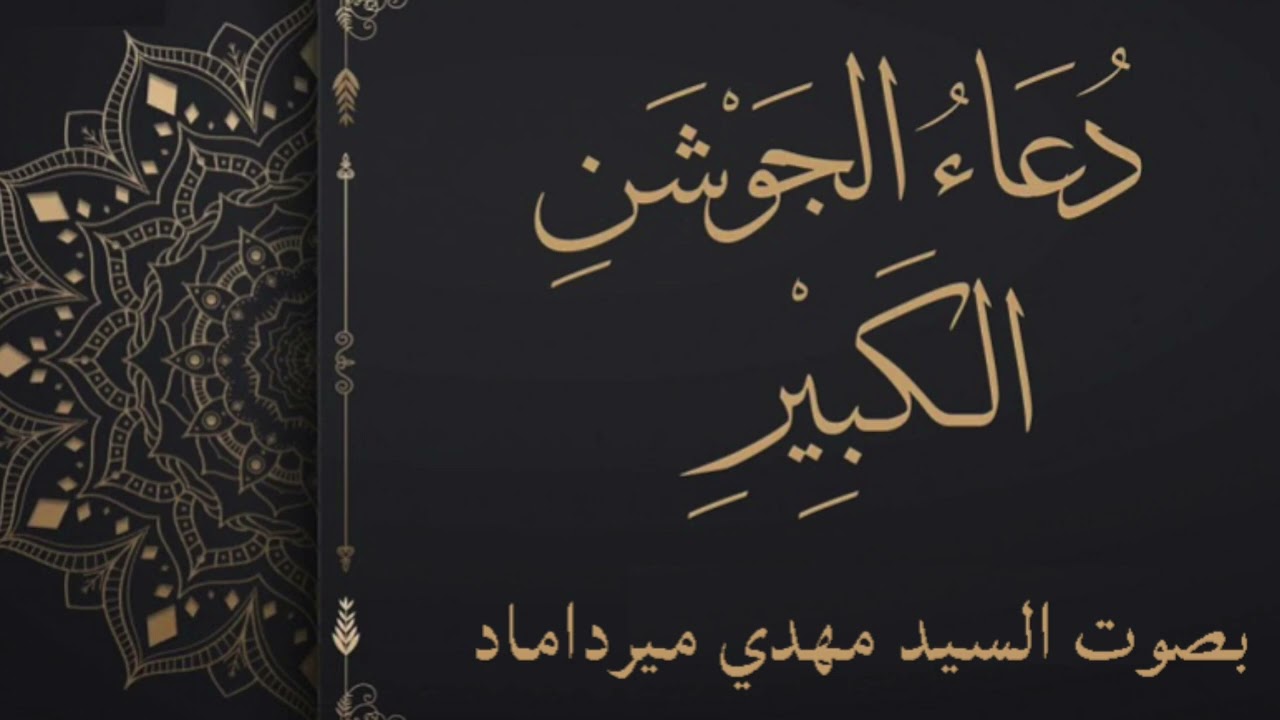 دُعَاءُ الجَوْشَنِ
الكَبِيْرِ
بصوت السيد مهدي ميرداماد